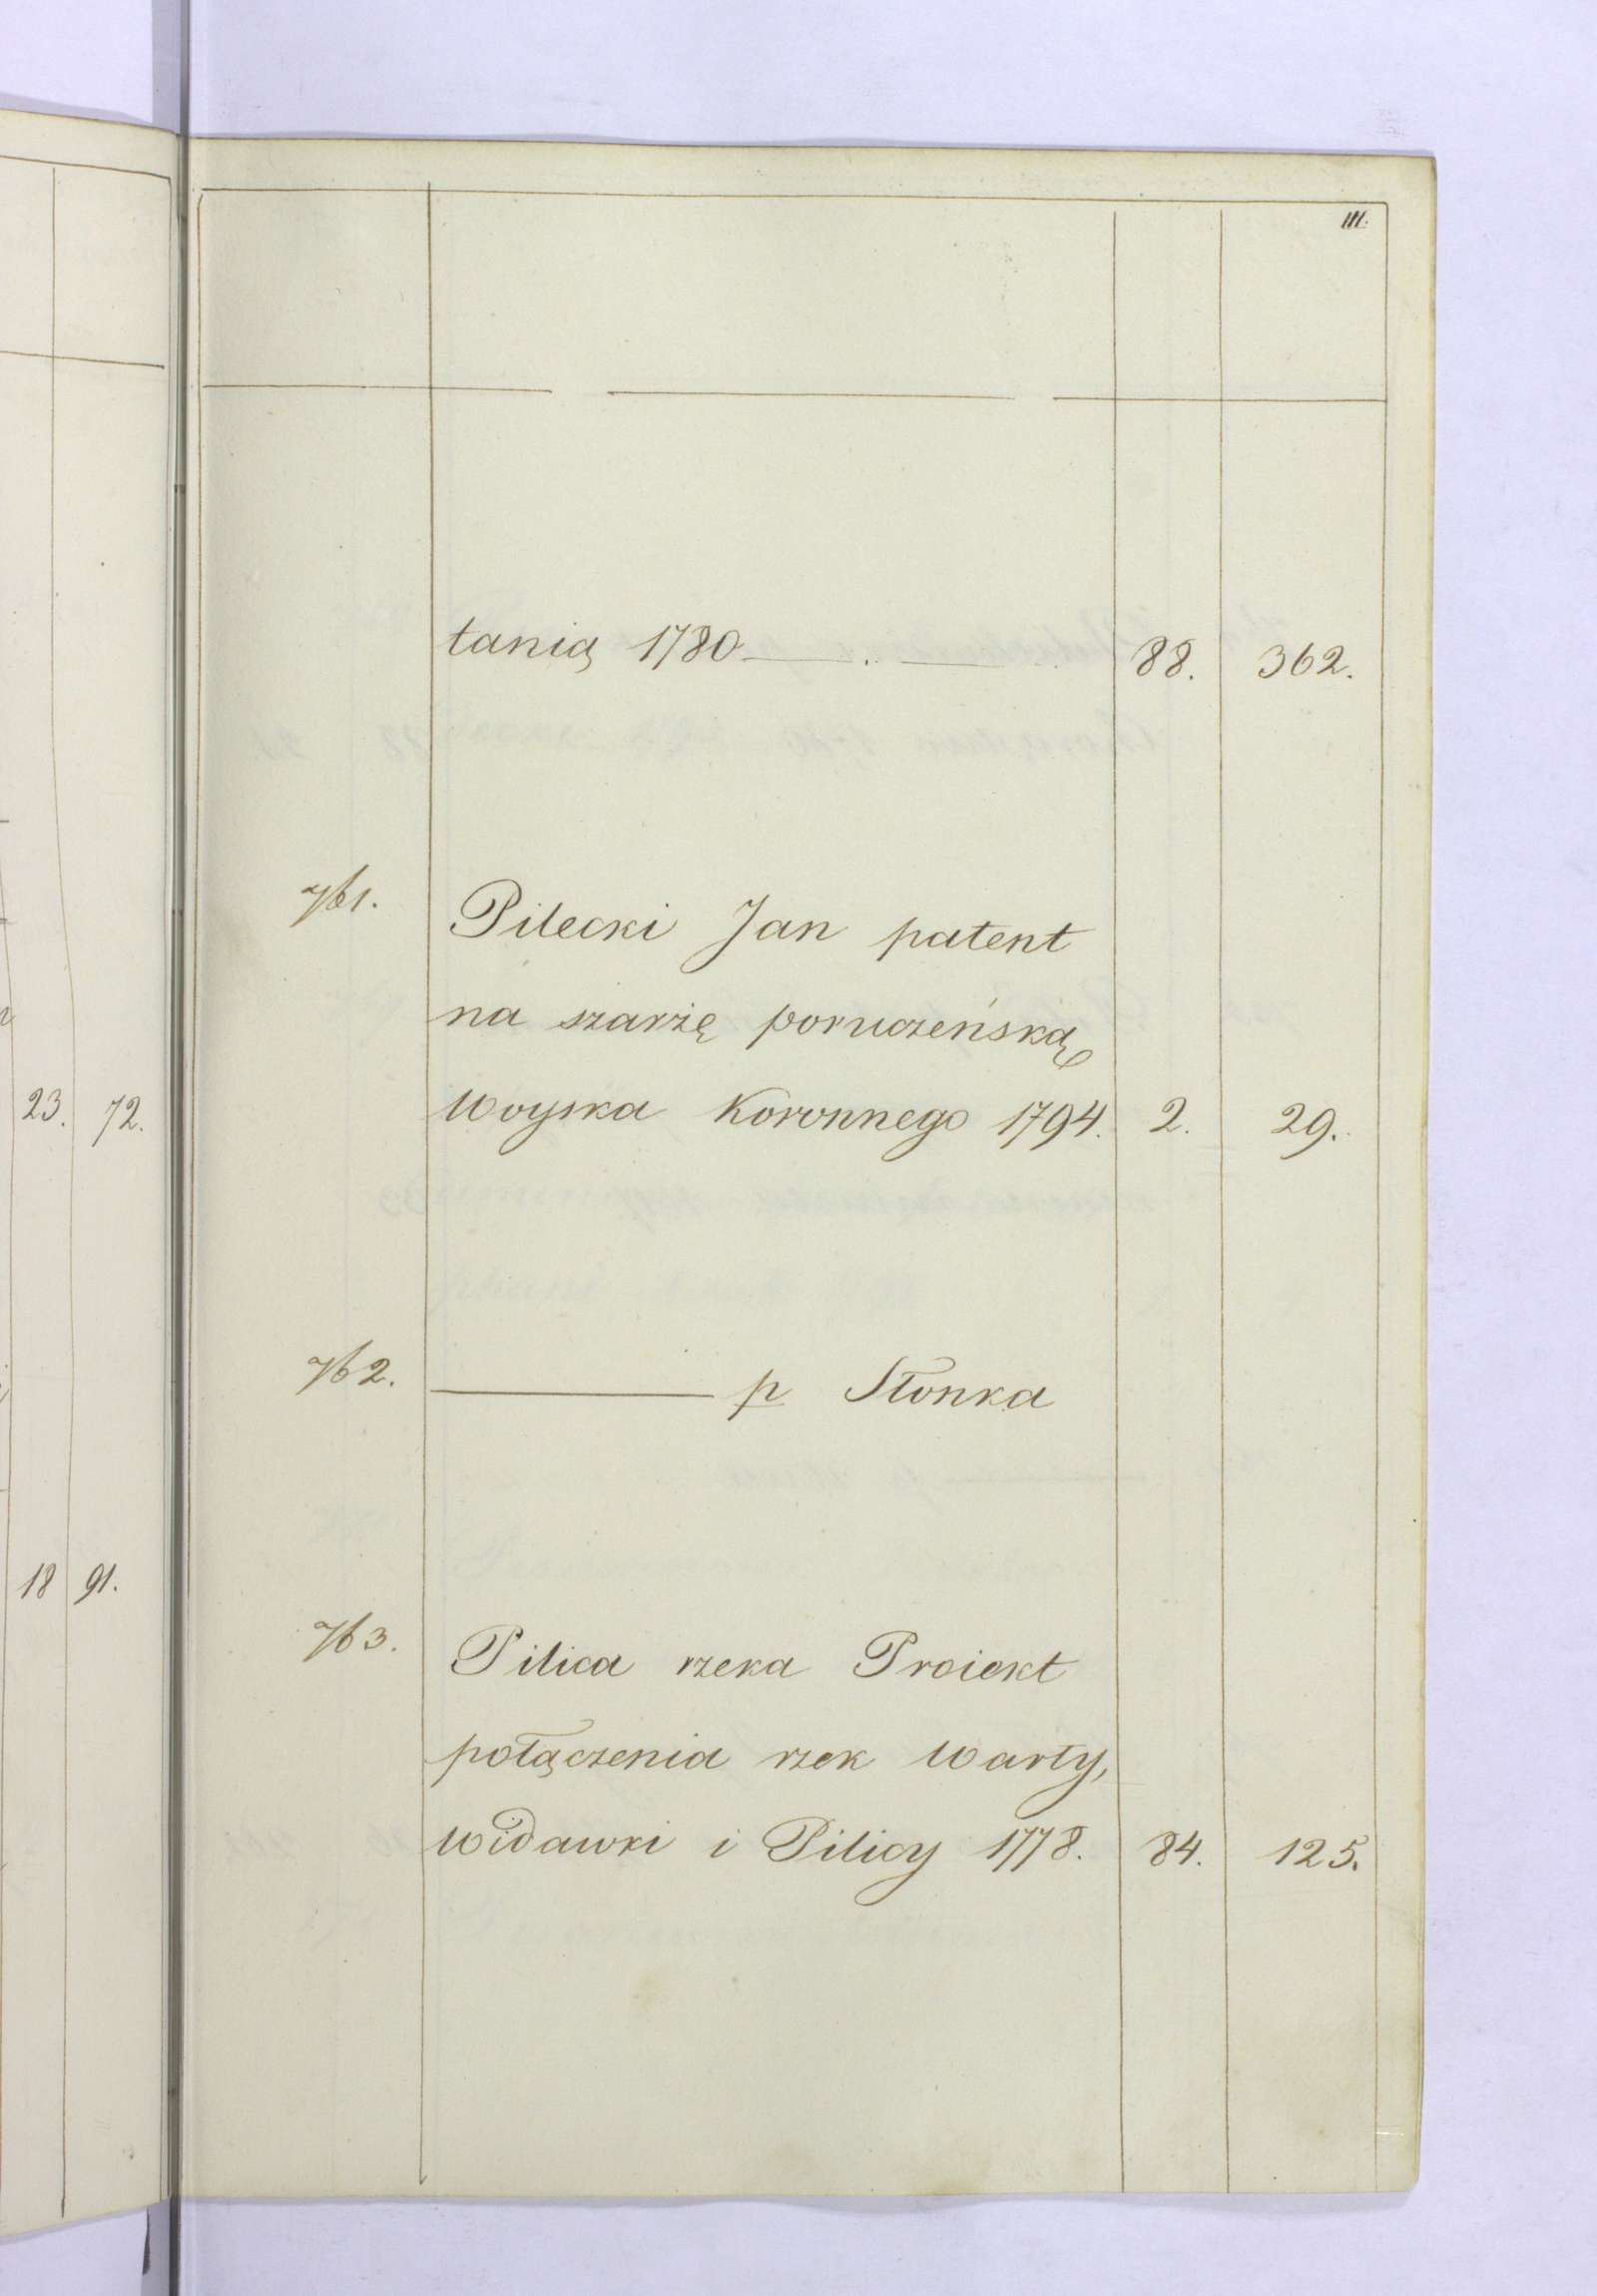 111.
tanią 1780 88. 362.
761. Pilecki Jan patent
na szarżę poruczeńską
Woyska Koronnego 1794. 2. 29.
762. p Słonka
763. Pilica rzeka Proiekt
połączenia rzek Warty,
Widawki i Pilicy 1778. 84. 125.
23. 72.
18 91.